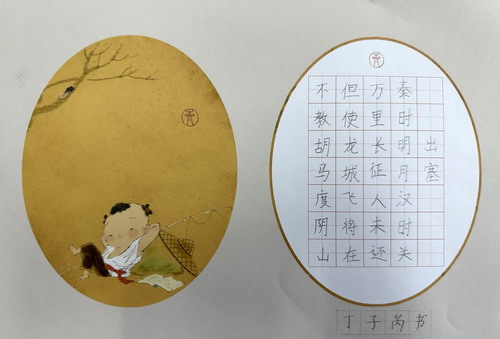 出塞
秦时明月汉时关
万里长征人未还
但使龙城飞将在
不教胡马度阴山
丁子芮书